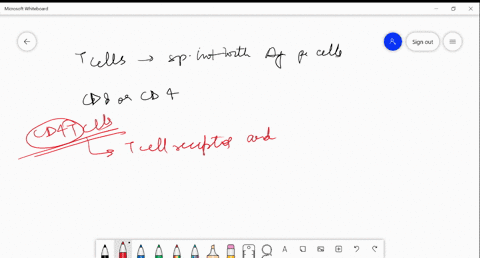 Microsoft Whiteboard
Sign out
T cells → sp. int with Ag pr cells
CD8 or CD4
CD4T cells
→ T cell receptor and